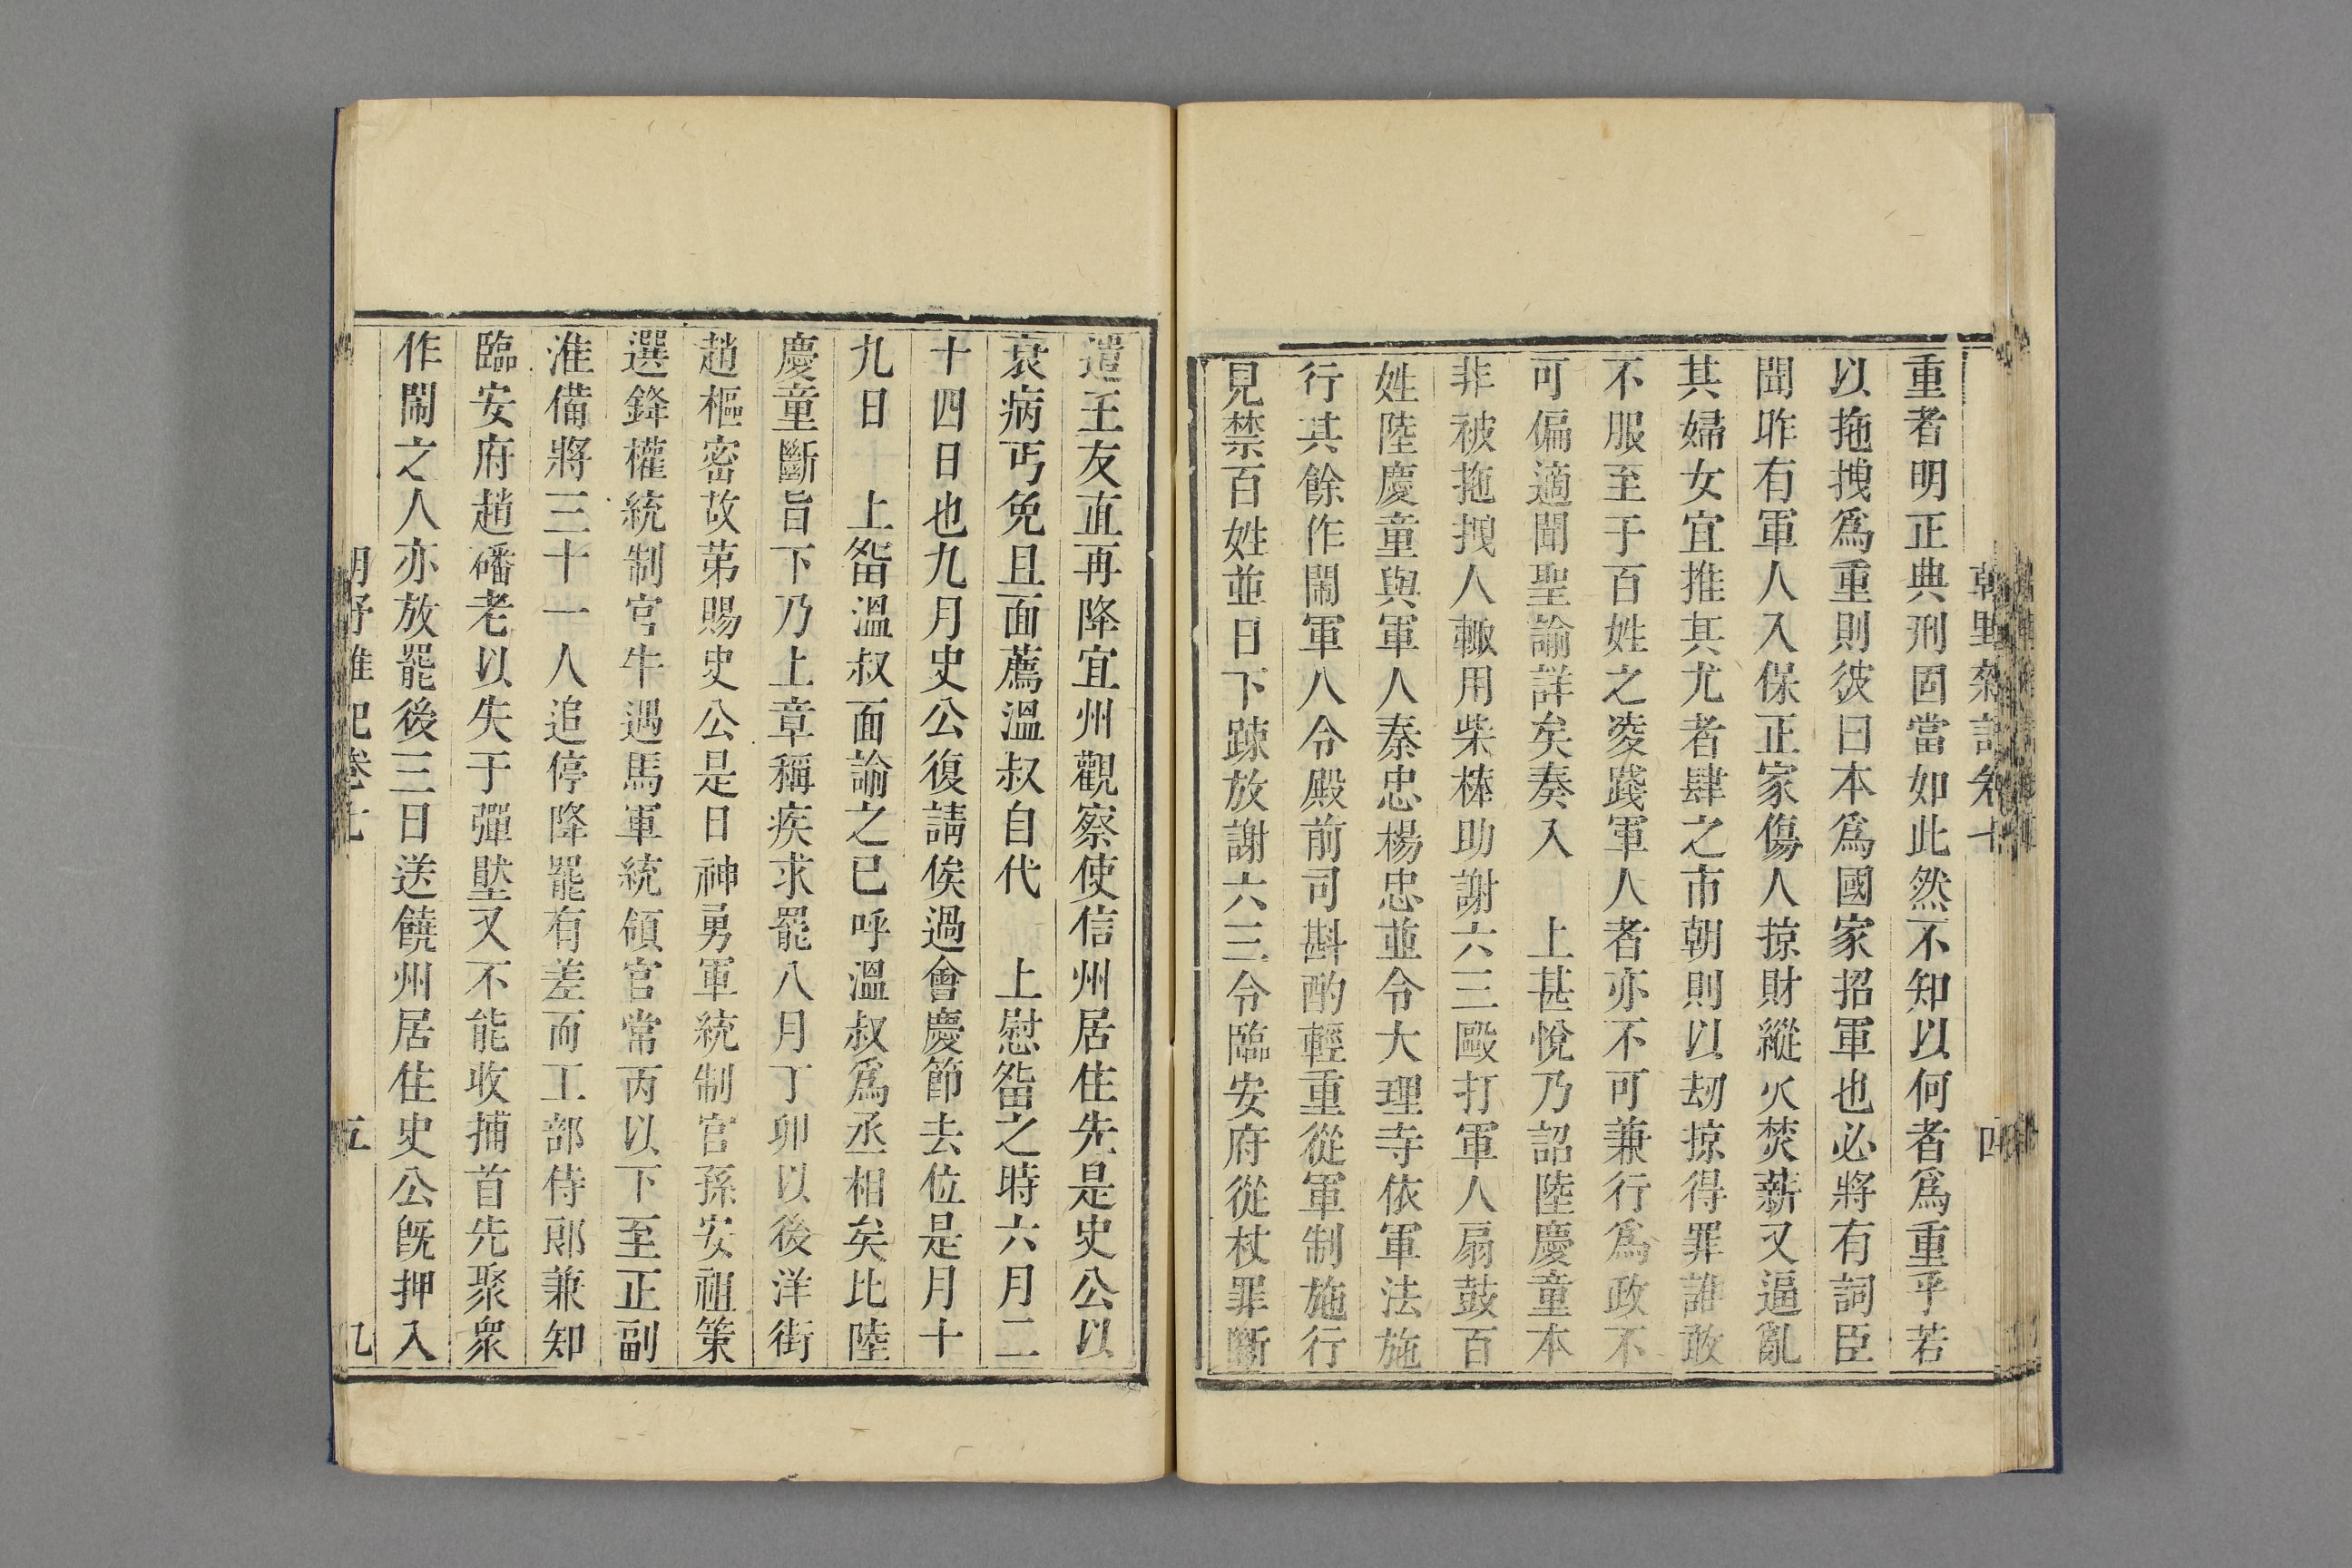 重者明正典刑固當如此然不知以何者爲重乎若
以拖拽爲重則彼曰本爲國家招軍也必將有詞臣
聞昨有軍人入保正家傷人掠財縱火焚薪又逼亂
其婦女宜推其尤者肆之市朝則以刼掠得罪誰敢
不服至于百姓之凌踐軍人者亦不可兼行爲政不
可偏適聞聖諭詳矣奏入　上甚悅乃詔陸慶童本
非被拖拽人輙用柴棒助謝六三毆打軍人扇鼓百
姓陸慶童與軍人秦忠楊忠並令大理寺依軍法施
行其餘作鬧軍人令殿前司斟酌輕重從軍制施行
見禁百姓並日下疎放謝六三令臨安府從杖罪斷
遣王友直再降宜州觀察使信州居住先是史公以
衰病丐免且面薦溫叔自代　上慰留之時六月二
十四日也九月史公復請俟過會慶節去位是月十
九日　上留溫叔面諭之已呼溫叔爲丞相矣比陸
慶童斷旨下乃上章稱疾求罷八月丁卯以後洋街
趙樞密故第賜史公是日神勇軍統制官孫安祖策
選鋒權統制官牛遇馬軍統領官常丙以下至正副
准備將三十一人追停降罷有差而工部侍郎兼知
臨安府趙磻老以失于彈壓又不能收捕首先聚衆
作鬧之人亦放罷後三日送饒州居住史公旣押入